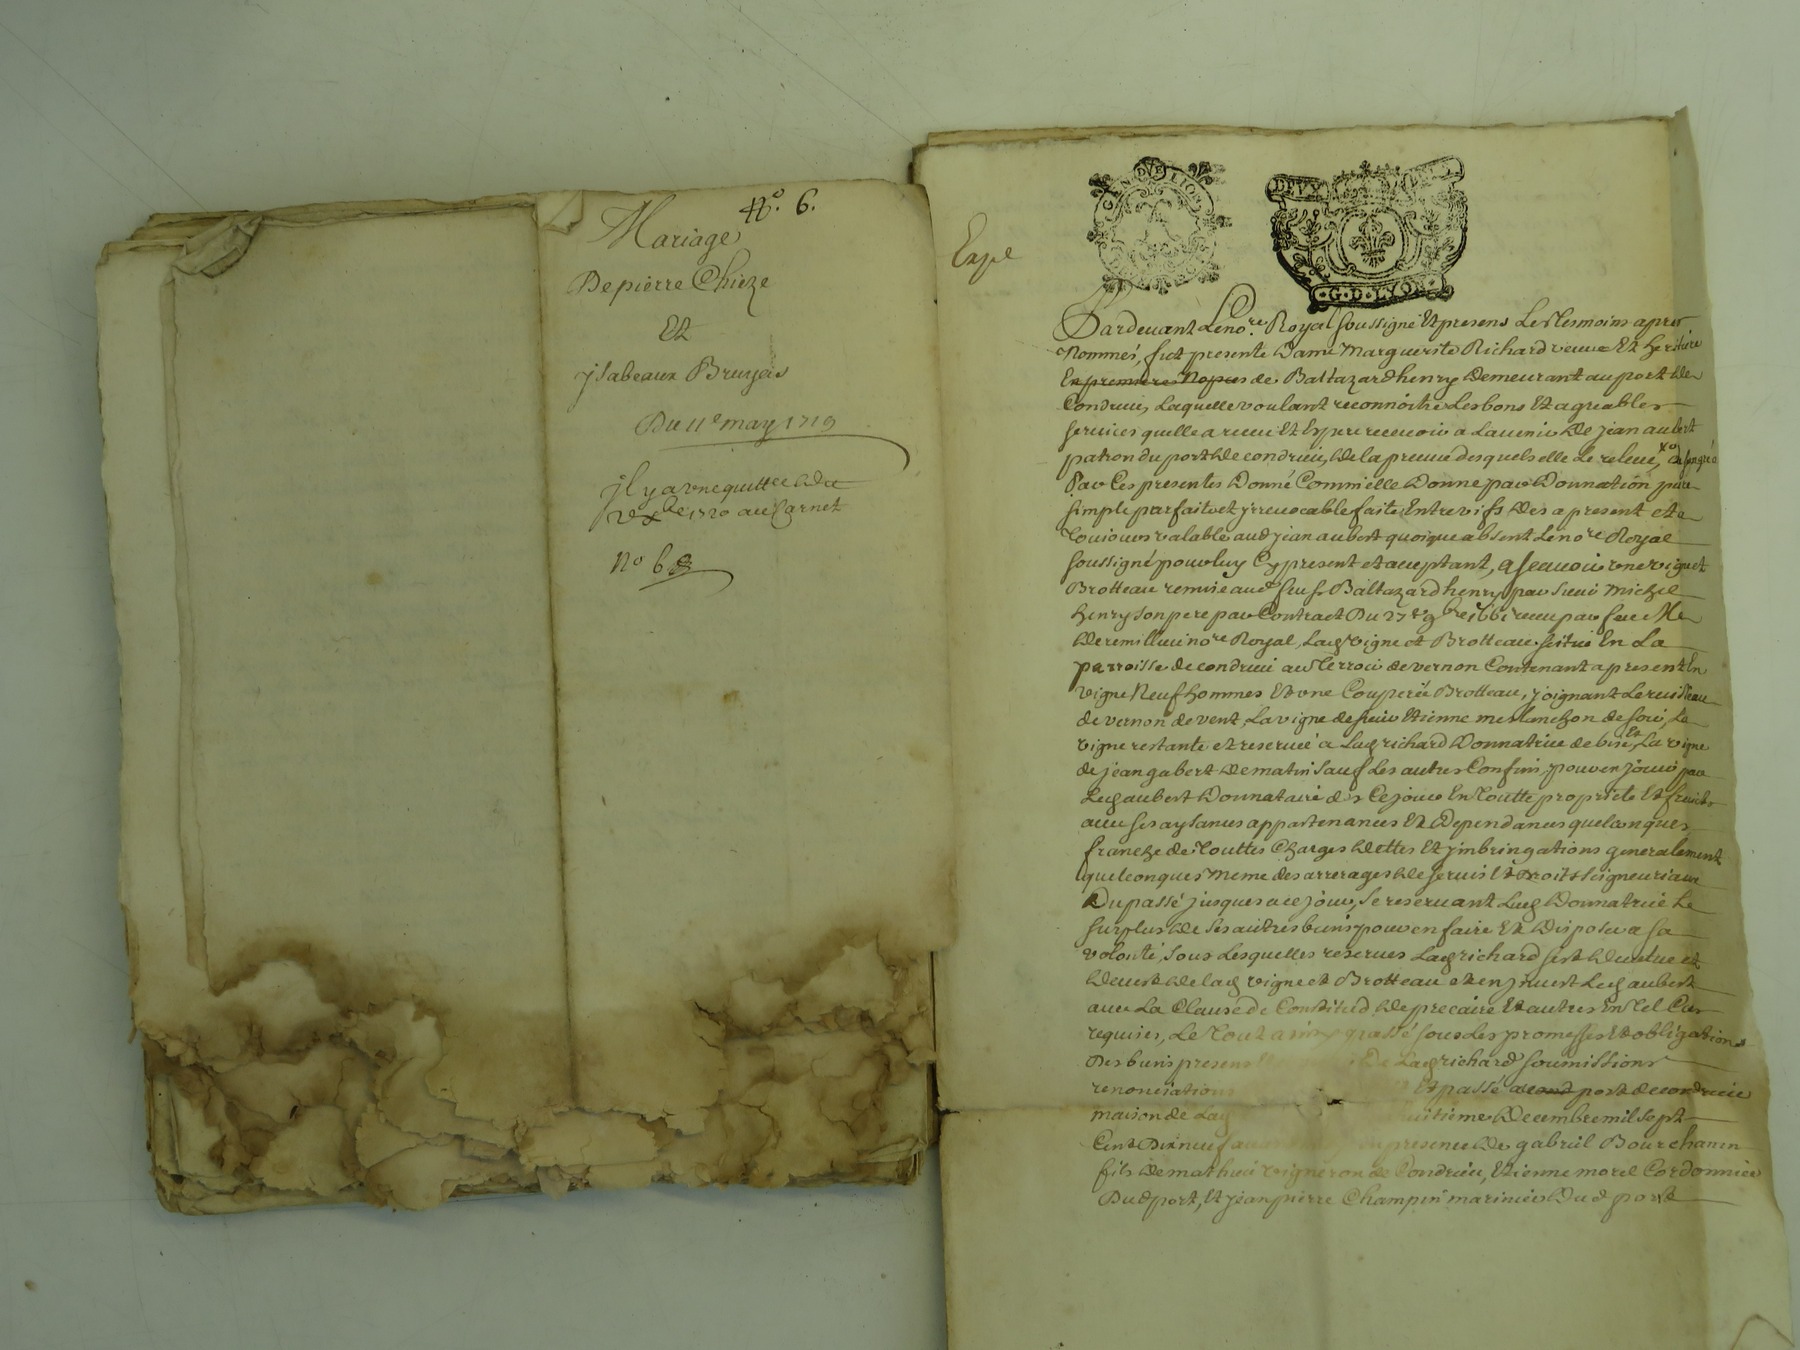 No. 6.
Mariage
De pierre Chieze
Et
ysabeaux Bruyas
Du 11e may 1719
il y a une quittce du
xe 1720 au Carnet
No 6
Expé
DEUX
G.D.LYON
Pardevant Le nore Royal soussigné Et presens Les tesmoins apres
Nommés, fut presente Dame Marguerite Richard veuve Et heritiere
En premieres Nopces de Baltazard henry demeurant au port de
Condrieu, Laquelle voulant reconnoitre Les bons Et agreables
services quelle a receu Et Espere recevoir a Lavenir de jean aubert
patron du port de condrieu, de la preuve desquels elle Le releve, a de son gré
Par Ces presentes Donné Comm'elle Donne par Donnation pure
simple parfaite et yrrevocable faite Entre vifs des a present et a
Toujours valable aud jean aubert quoique absent Le nore Royal
soussigné pour luy Cy present et acceptant, a scavoir une vigne et
Brotteau remise aud feu sr Baltazard henry par sieur michel
henry son pere par Contract Du 27e 9bre 1661 receu par feu Me
de remillieu nore Royal, Lad vigne et Brotteau sittué En La
parroisse de condrieu au Terroir de vernon Contenant a present En
vigne Neuf hommes Et une Couperée Brotteau, joignant Le ruisseau
de vernon de vent, La vigne de sieur Etienne merlanchon de soir, La
vigne restante et reservée a Lad richard Donnatrice de bise, Et La vigne
de jean gabert de matin sauf Les autres Confins, pour en jouir par
Led aubert Donnataire des Ce jour En Toutte proprieté Et fruits
avec ses aysances appartenances Et Dependances quelconques
franche de Touttes Charges dettes Et ymbringations generalement
quelconques meme des arrerages de servis Et droits seigneuriaux
Du passé jusques a ce jour, se reservant Lad Donnatrice Le
surplus de ses autres biens pour en faire Et Disposer a sa
volonté, sous Lesquelles reserves Lad richard s'est devetue et
devest de lad vigne et Brotteau et en jnvest Led aubert
avec La Clause de Constitud de precaire Et autres En Tel Cas
requises, Le Tout ainsy passé sous Les promesses Et obligations
Des biens presens de Lad richard soumissions
renonciations Et passé port de condrieu
maison de Lad huitieme Decembre mil sept
Cent Dix neuf presence de gabriel Bourchanin
fils de mathieu vigneron de Condrieu, Etienne morel Cordonnier
Dud port, Et jean pierre Champin marinier Dud port